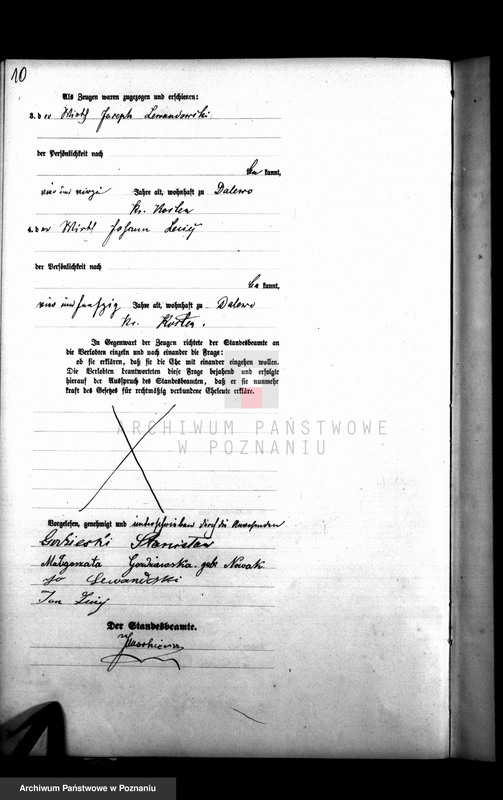 10
Als Zeugen waren zugezogen und erschienen:
3. der Wirth Joseph Lewandowski
der Persönlichkeit nach
be kannt,
vier und vierzig Jahre alt, wohnhaft zu Dalewo
Kr. Kosten
4. der Wirth Johann
der Persönlichkeit nach
be kannt,
vier und fünfzig Jahre alt, wohnhaft zu Dalewo
Kr. Kosten.
In Gegenwart der Zeugen richtete der Standesbeamte an
die Verlobten einzeln und nach einander die Frage:
ob sie erklären, daß sie die Ehe mit einander eingehen wollen.
Die Verlobten beantworteten diese Frage bejahend und erfolgte
hierauf der Ausspruch des Standesbeamten, daß er sie nunmehr
kraft des Gesetzes für rechtmäßig verbundene Eheleute erkläre.
ARCHIWUM PAŃSTWOWE
W POZNANIU
Vorgelesen, genehmigt und unterschrieben durch die Anwesenden
Stanisław
Małgorzata geb Nowak
Jo Lewandoski
Jan
Der Standesbeamte.
Archiwum Państwowe w Poznaniu